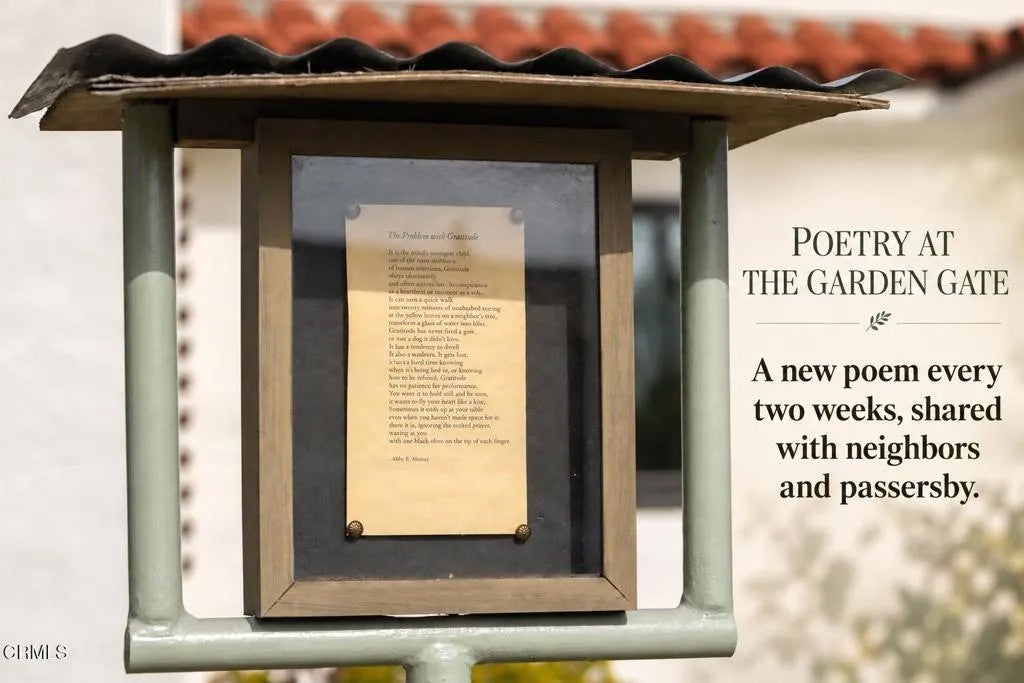 The Problem with Gratitude
It is the mind's youngest child,
one of the most stubborn
of human emotions, Gratitude
obeys
and often arrives late. Its
as a heartbeat or
It can turn a quick walk
into twenty minutes of unabashed staring
at the yellow leaves on a neighbor's tree,
transform a glass of water into bliss.
Gratitude has never fired a gun,
or met a dog it didn't love.
It has a tendency to dwell
It also a wanderer. It gets lost.
It has a hard time knowing
when it's being lied to, or knowing
how to be refused. Gratitude
has no patience for performance.
You want it to hold still and be seen,
it wants to fly your heart like a kite,
Sometimes it ends up at your table
even when you haven't made space for it;
there it is, ignoring the recited prayer,
waving at you
with one black olive on the tip of each finger.
-Abby E. Murray
POETRY AT
THE GARDEN GATE
A new poem every
two weeks, shared
with neighbors
and passersby.
CRMLS